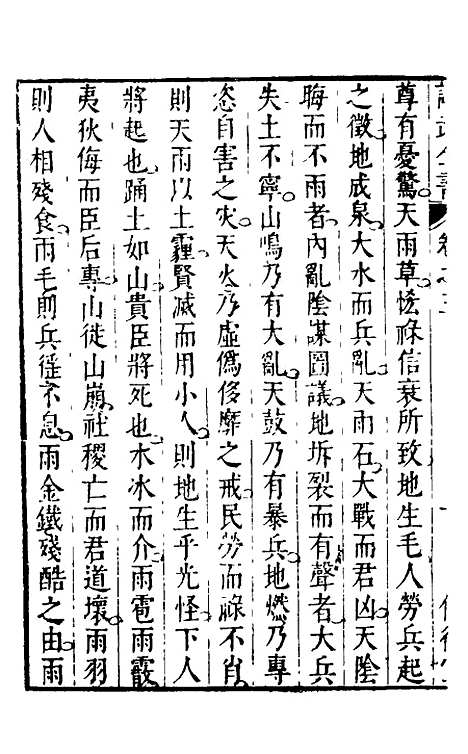 尊有憂驚天雨草恡祿信衰所致地生毛人勞兵起
之徵地成泉大水而兵亂天雨石大戰而君凶天陰
晦而不雨者內亂陰謀圖議地坼裂而有聲者大兵
失土不寧山鳴乃有大亂天鼓乃有暴兵地燃乃專
恣自害之灾天火乃虛僞侈靡之戒民勞而祿不肖
則天雨以土霾賢滅而用小人則地生乎光怪下人
將起也踊土如山貴臣將死也木冰而介雨雹雨霰
夷狄侮而臣后專山徙山崩社稷亡而君道壞雨羽
則人相殘食雨毛則兵徭不息雨金鐵殘酷之由雨